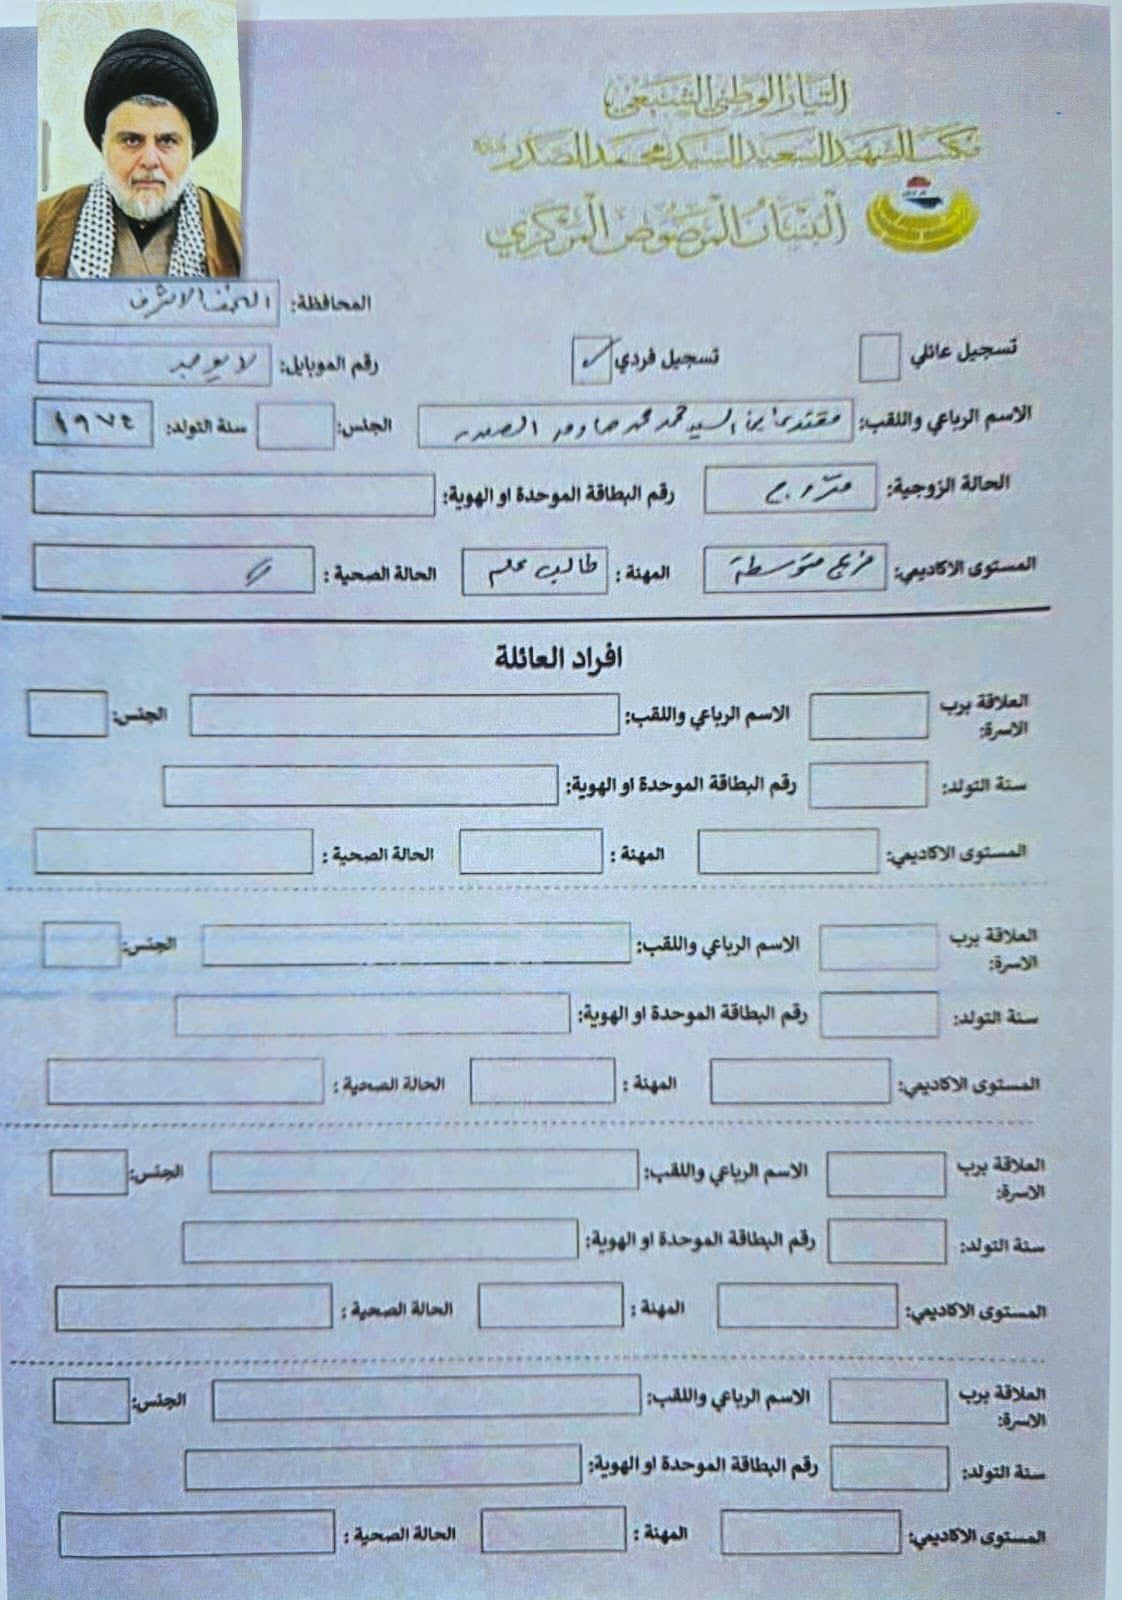 التيار الوطني الشيعي
مكتب السيد الشهيد السعيد السيد محمد الصدر
البنيان المرصوص المركزي
المحافظة: النجف الاشرف
تسجيل عائلي تسجيل فردي ✓ رقم الموبايل: لا يوجد
الاسم الرباعي واللقب: مقتدى ابن السيد محمد محمد صادق الصدر الجنس: سنة التولد: ١٩٧٤
الحالة الزوجية: متزوج رقم البطاقة الموحدة او الهوية:
المستوى الاكاديمي: خريج متوسطة المهنة : طالب علم الحالة الصحية :
افراد العائلة
العلاقة برب الاسم الرباعي واللقب: الجنس:
الاسرة:
سنة التولد: رقم البطاقة الموحدة او الهوية:
المستوى الاكاديمي: المهنة : الحالة الصحية :
العلاقة برب الاسم الرباعي واللقب: الجنس:
الاسرة:
سنة التولد: رقم البطاقة الموحدة او الهوية:
المستوى الاكاديمي: المهنة : الحالة الصحية :
العلاقة برب الاسم الرباعي واللقب: الجنس:
الاسرة:
سنة التولد: رقم البطاقة الموحدة او الهوية:
المستوى الاكاديمي: المهنة : الحالة الصحية :
العلاقة برب الاسم الرباعي واللقب: الجنس:
الاسرة:
سنة التولد: رقم البطاقة الموحدة او الهوية:
المستوى الاكاديمي: المهنة : الحالة الصحية :